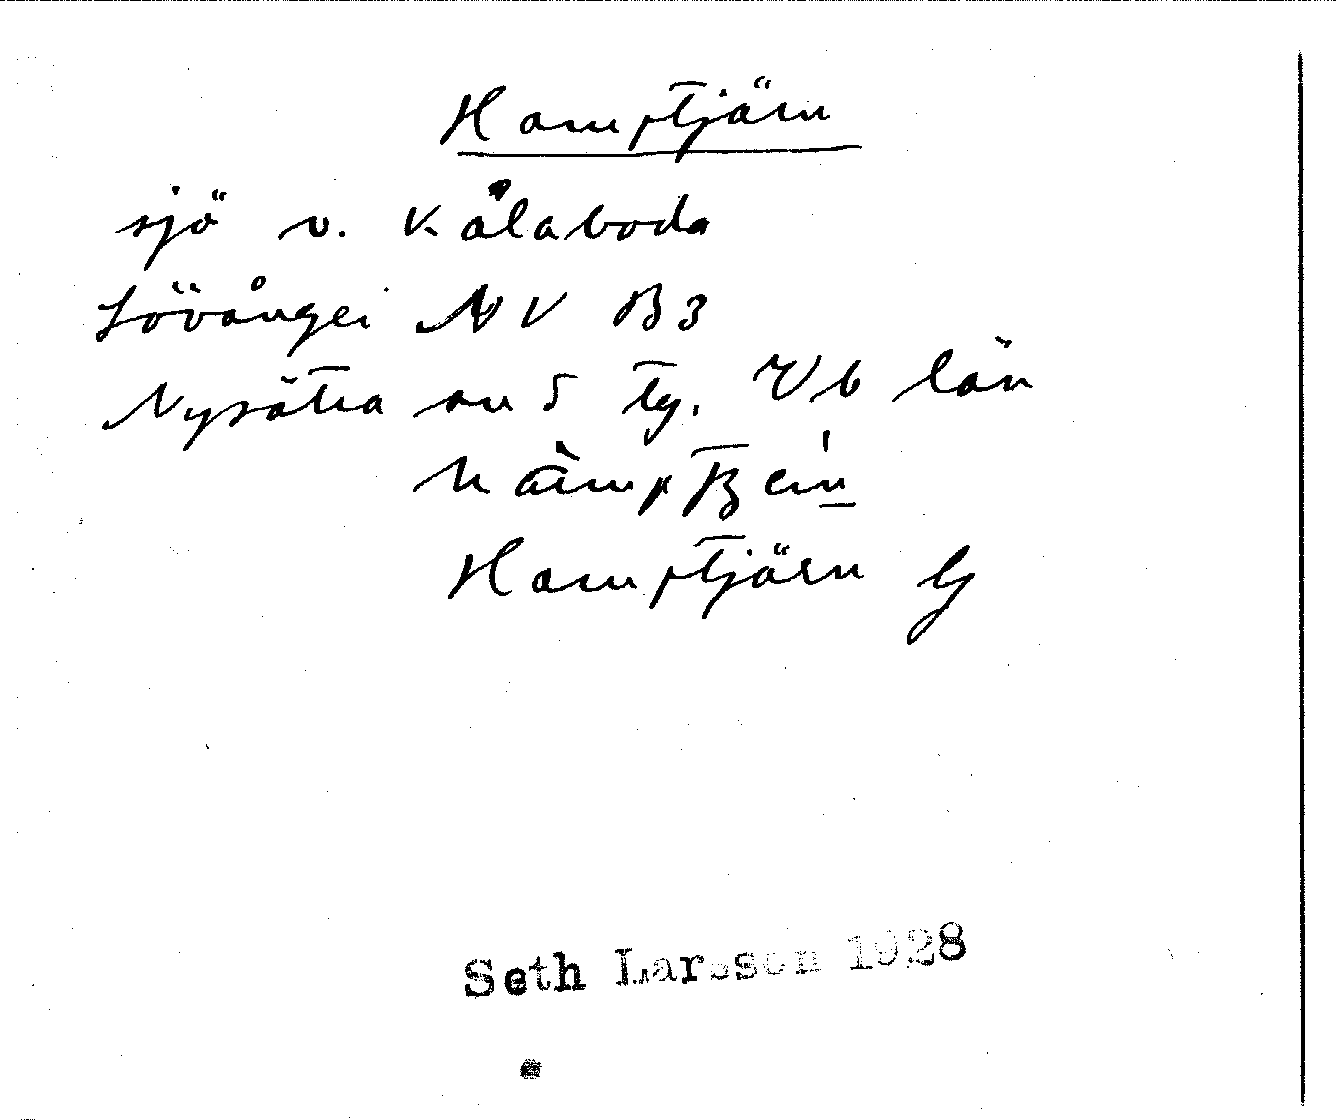 Hamptjärn
sjö v. Kålaboda
Lövånger NV B3
Nysätra sn 5 tg. Vb län
Hamptjärn
Seth Larsson 1928